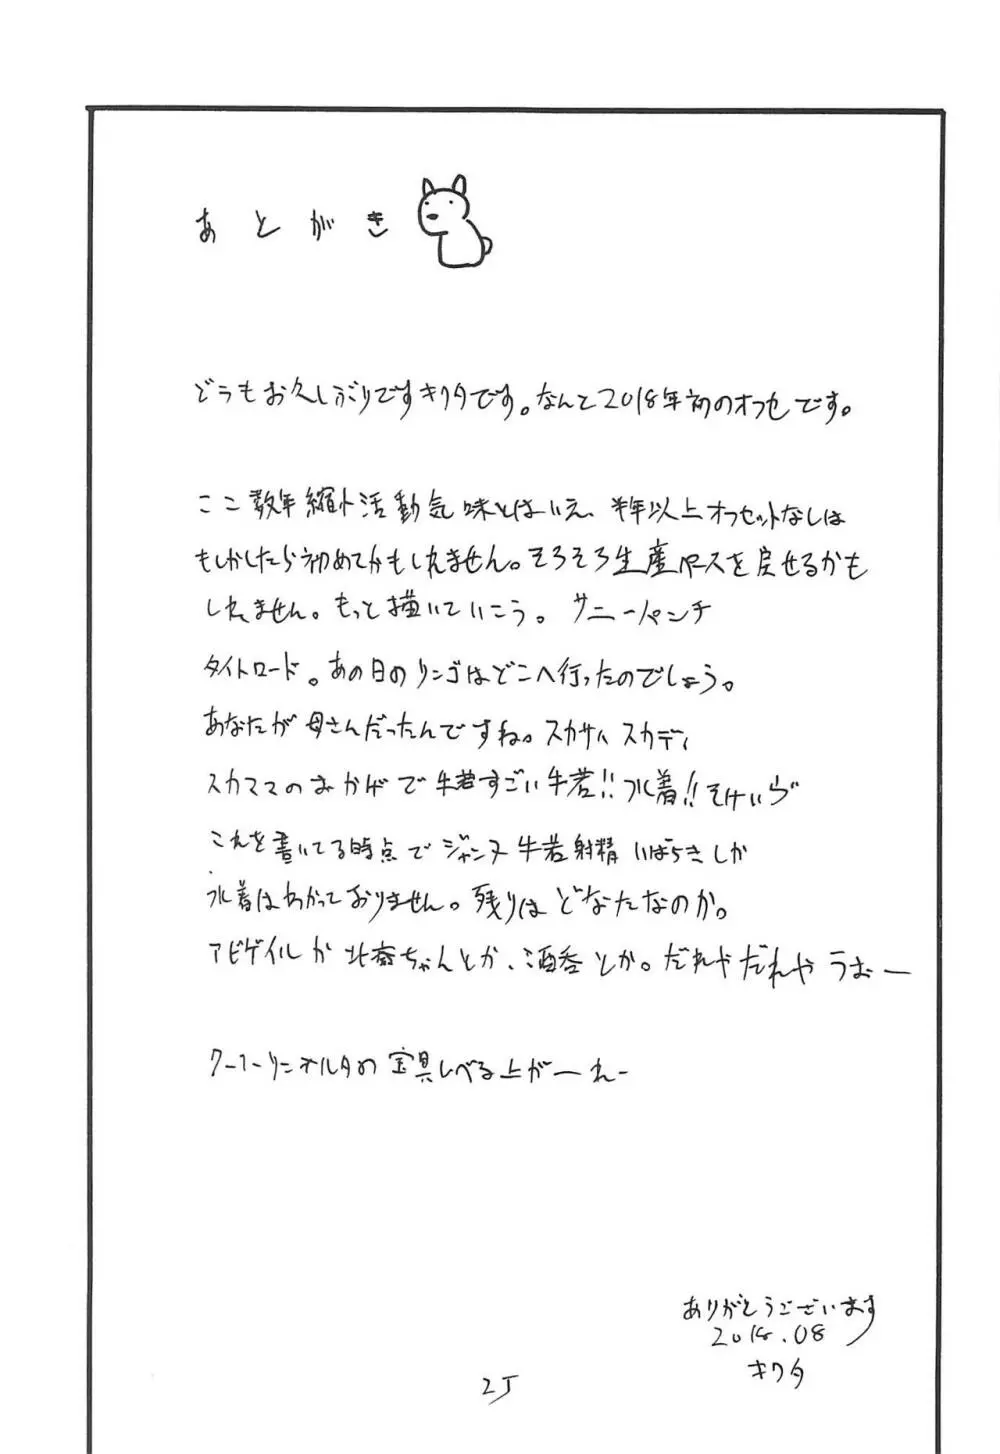 あとがき
どうもお久しぶりですキクタです。なんと2018年初のオフセです。
ここ数年縮小活動気味とはいえ、半年以上オフセットなしは
もしかしたら初めてかもしれません。そろそろ生産ペースを戻せるかも
しれません。もっと描いていこう。サニーパンチ
タイトロード。あの日のリンゴはどこへ行ったのでしょう。
あなたが母さんだったんですね。スカサハ スカディ
スカママのおかげで牛若すごい牛若!!水着!!そけいぶ
これを書いてる時点でジャンヌ 牛若 射精 いばらきしか
水着はわかっておりません。残りはどなたなのか。
アビゲイルか北斎ちゃんとか、酒呑とか。だれやだれや うおー
クーフーリンオルタの宝具レベる上がーれー
ありがとうございます
2018.08
キクタ
25